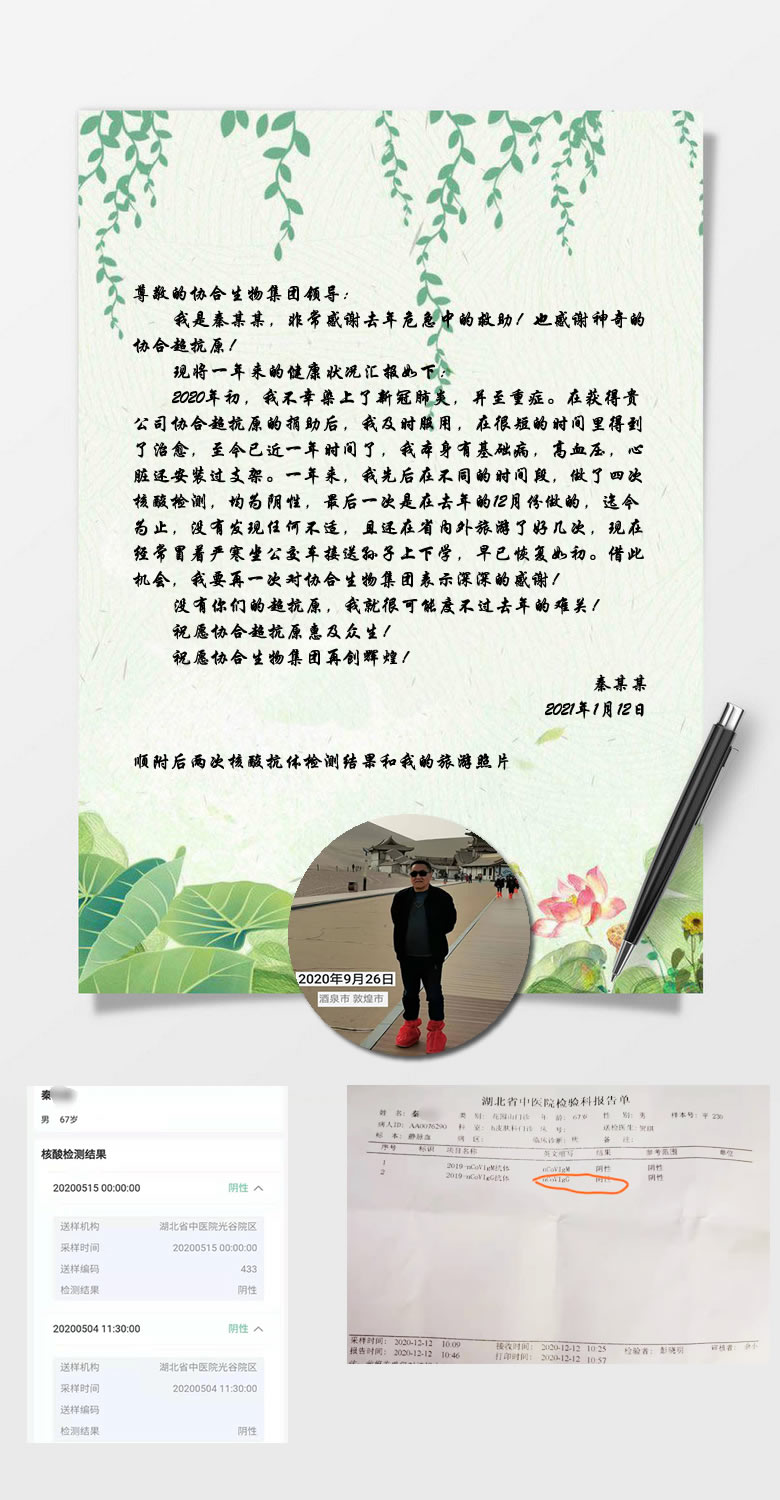 尊敬的协合生物集团领导:
我是秦某某,非常感谢去年危急中的救助!也感谢神奇的
协合超抗原!
现将一年来的健康状况汇报如下:
2020年初,我不幸染上了新冠肺炎,并至重症。在获得贵
公司协合超抗原的捐助后,我及时服用,在很短的时间里得到
了治愈,至今已近一年时间了,我本身有基础病,高血压,心
脏还安装过支架。一年来,我先后在不同的时间段,做了四次
核酸检测,均为阴性,最后一次是在去年的12月份做的,迄今
为止,没有发现任何不适,且还在省内外旅游了好几次,现在
经常冒着严寒坐公交车接送孙子上下学,早已恢复如初。借此
机会,我要再一次对协合生物集团表示深深的感谢!
没有你们的超抗原,我就很可能度不过去年的难关!
祝愿协合超抗原惠及众生!
祝愿协合生物集团再创辉煌!
秦某某
2021年1月12日
顺附后两次核酸抗体检测结果和我的旅游照片
2020年9月26日
酒泉市 敦煌市
秦
男 67岁
核酸检测结果
20200515 00:00:00 阴性
送样机构 湖北省中医院光谷院区
采样时间 20200515 00:00:00
送样编码 433
检测结果 阴性
20200504 11:30:00 阴性
送样机构 湖北省中医院光谷院区
采样时间 20200504 11:30:00
送样编码
检测结果 阴性
湖北省中医院检验科报告单
姓 名: 秦 类 别: 花园山门诊 年 龄: 67岁 性 别: 男 样本号: 平 236
病人ID: AA0076290 科 室: 皮肤科门诊 床 号: 送检医生: 贺琪
标 本: 静脉血 病 区: 临床诊断: 备 注:
序号 标识 项目名称 英文缩写 结果 参考范围 单位
1 2019-nCoVIgM抗体 nCoVIgM 阴性 阴性
2 2019-nCoVIgG抗体 nCoVIgG 阴性 阴性
采样时间: 2020-12-12 10:09 接收时间: 2020-12-12 10:25 检验者: 彭晓明 审核者:
报告时间: 2020-12-12 10:46 打印时间: 2020-12-12 10:57